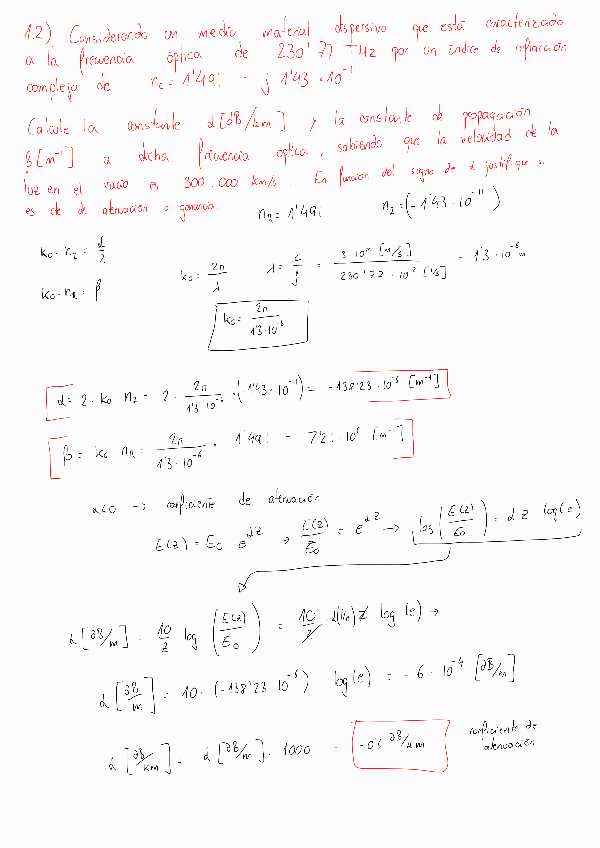 1.2) Considerando un medio material dispersivo que está caracterizado
a la frecuencia óptica de 230'77 THz por un índice de refracción
complejo de nc = 1'491 - j 1'43 · 10^-11
Calcule la constante α [dB/km] y la constante de propagación
β [m^-1] a dicha frecuencia optica, sabiendo que la velocidad de la
luz en el vacío es 300.000 km/s. En función del signo de α justifique si
es de de atenuación o ganancia.
nR = 1'491 nI = (-1'43 · 10^-11)
k0 · nI = α/2
k0 · nR = β
k0 = 2π/λ λ = c/f = 3·10^8 [m/s] / 230'77 · 10^12 [1/s] = 1'3 · 10^-6 m
k0 = 2π / 1'3·10^-6
α = 2 · k0 nI = 2 · 2π / 1'3·10^-6 · (-1'43·10^-11) = -138'23 · 10^-6 [m^-1]
β = k0 nR = 2π / 1'3·10^-6 · 1'491 = 7'21 · 10^6 [m^-1]
α<0 → coeficiente de atenuación
E(z) = E0 e^αz → E(z)/E0 = e^αz → log(E(z)/E0) = α z log(e)
α [dB/m] = 10/z log (E(z)/E0) = 10/z α[1/m] z log(e) →
α [dB/m] = 10 · (-138'23 10^-6) log(e) = -6 · 10^-4 [dB/m]
α [dB/km] = α [dB/m] · 1000 = -0'6 dB/km coeficiente de
atenuación